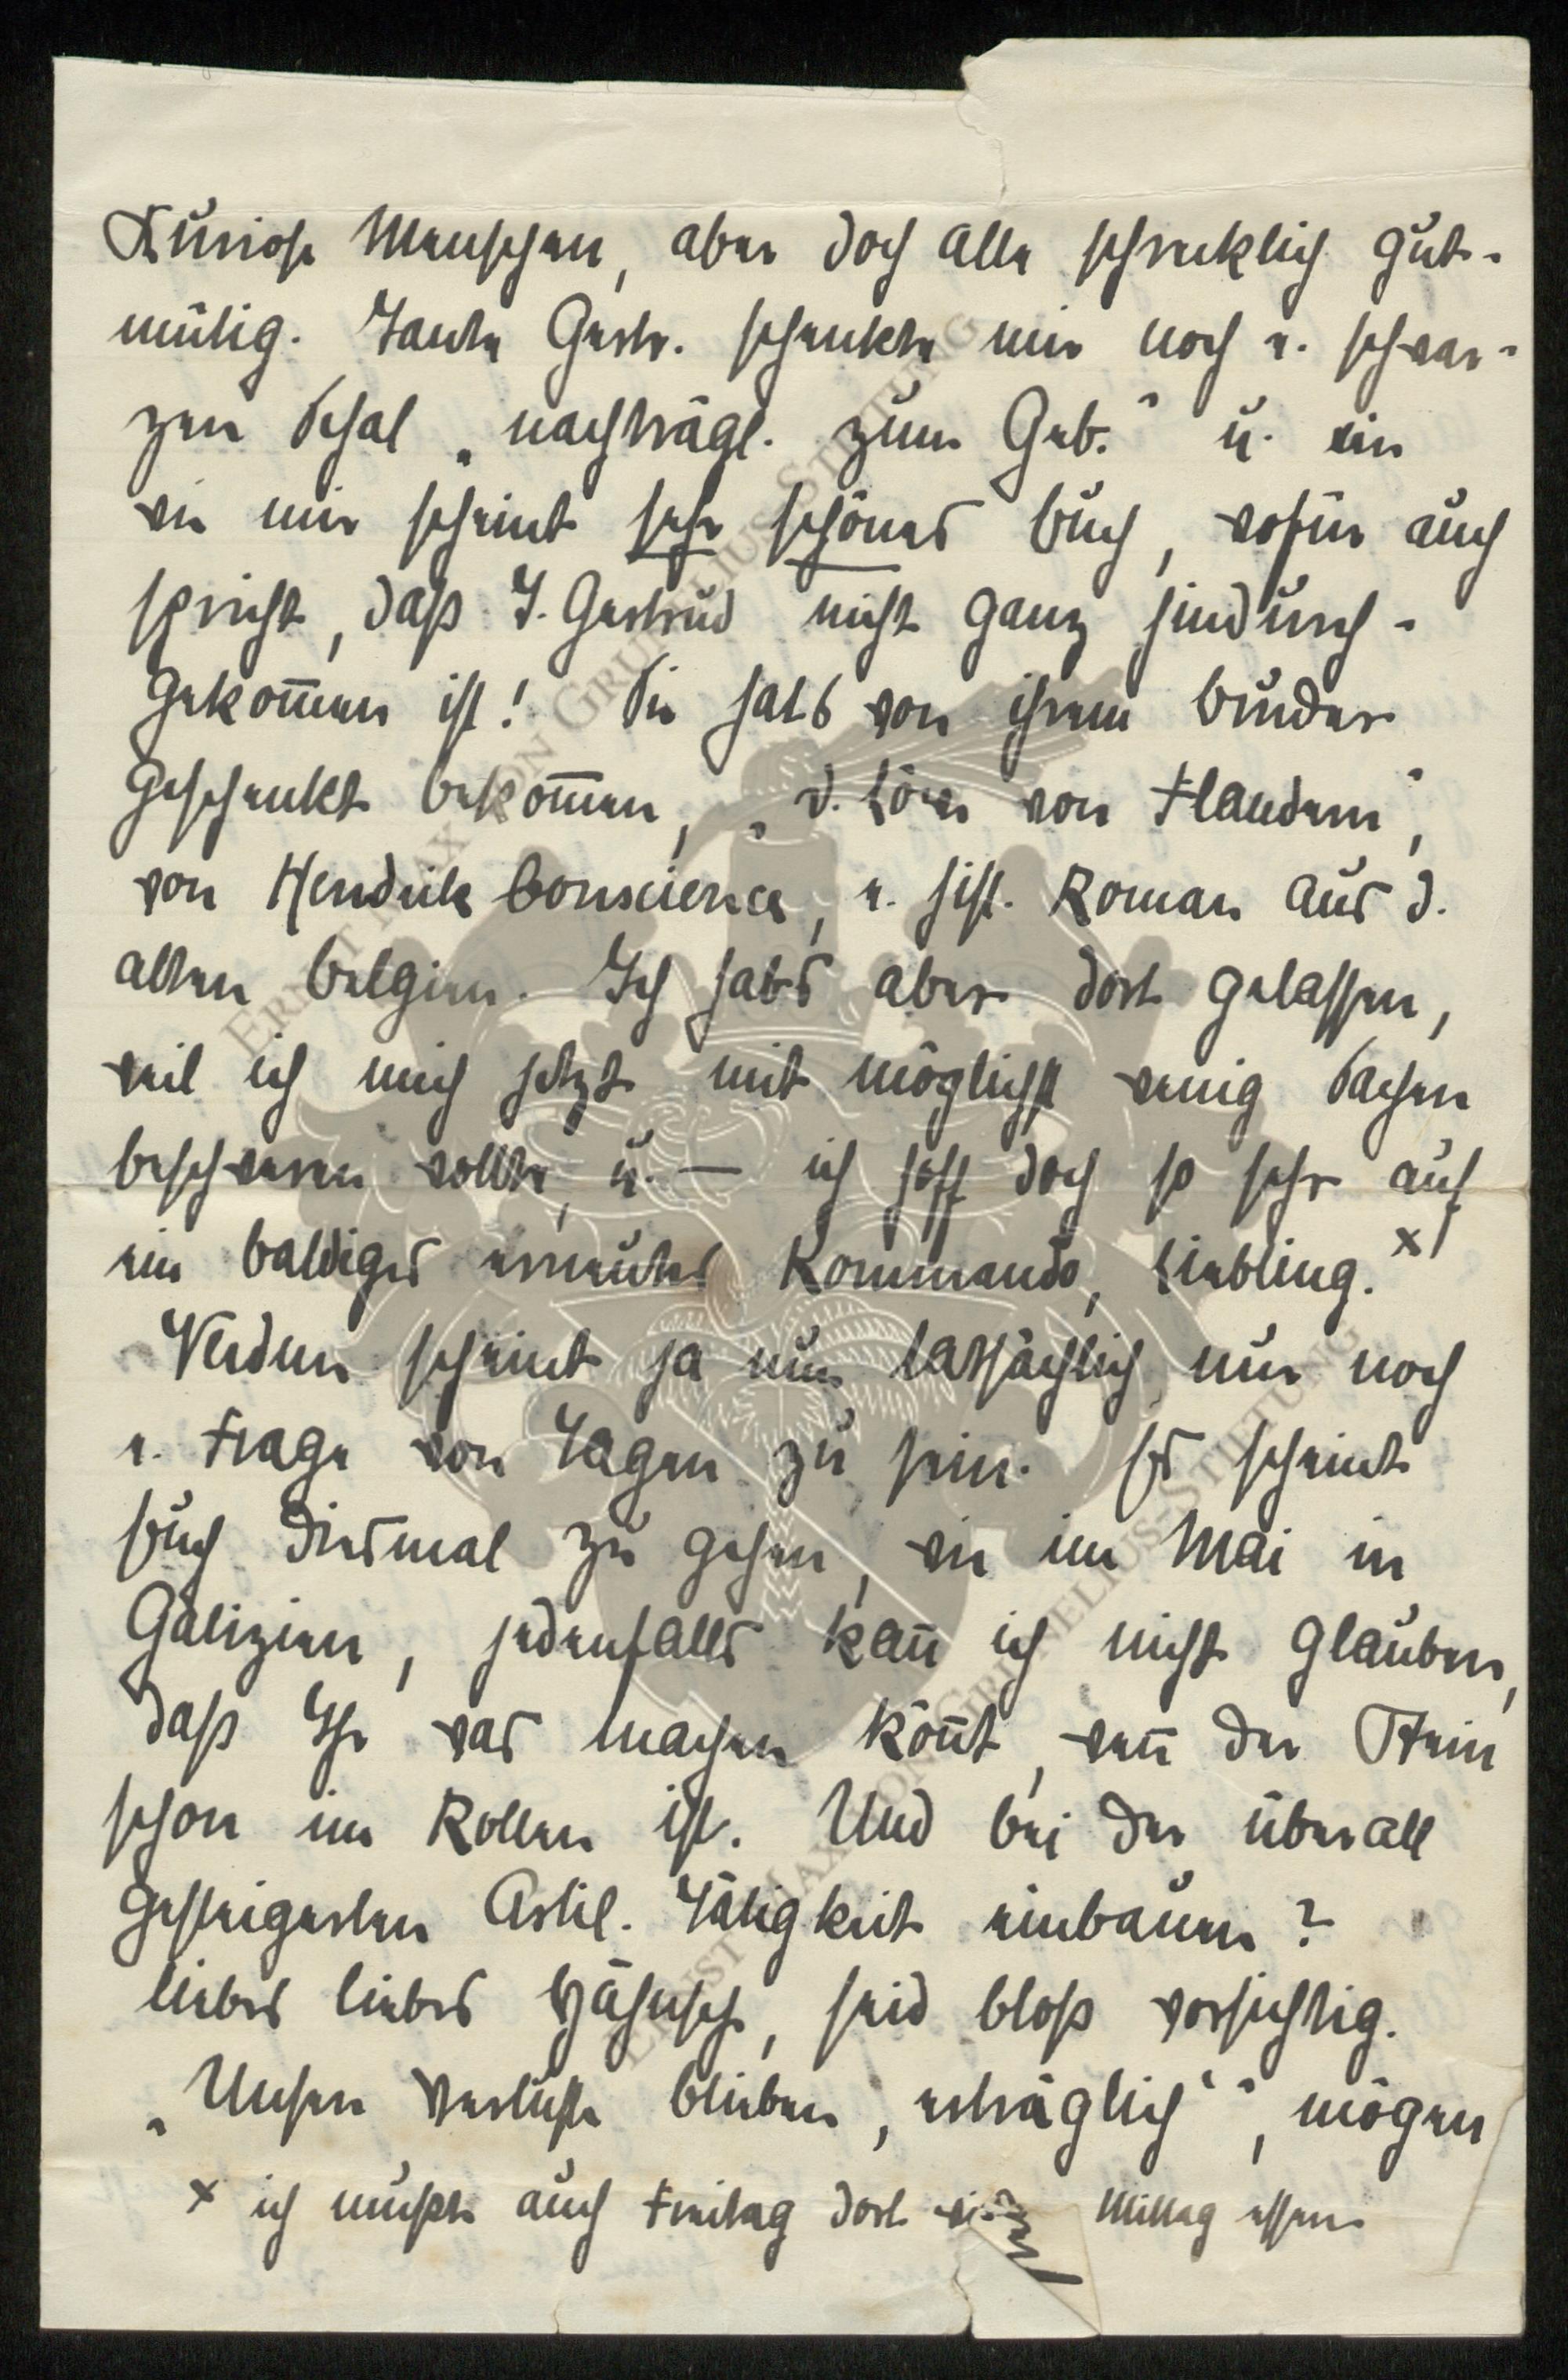 Kuriose Menschen, aber doch alle schrecklich gut-
mütig. Tante Gertr. schenkte mir noch e. schwar-
zen Schal „nachträgl. zum Geb.“ u. ein
wie mir scheint sehr schönes Buch, wofür auch
spricht, daß T. Gertrud nicht ganz hindurch-
gekom̄en ist! Sie hats von ihrem Bruder
geschenkt bekom̄en, „D. Löwe von Flandern“,
von Hendrik Conscience, e. hist. Roman aus d.
alten Belgien. Ich habs aber dort gelassen,
weil ich mich jetzt mit möglichst wenig Sachen
beschweren wollte, u. — ich hoff doch so sehr auf
ein baldiges erneutes Kommando, Liebling. x)
Verdun scheint ja nun tatsächlich nur noch
e. Frage von Tagen zu sein. Es scheint
Euch diesmal zu gehen, wie im Mai in
Galizien, jedenfalls kan̄ ich nicht glauben,
daß Ihr was machen kön̄t, wen̄ der Stein
schon im Rollen ist. Und bei der überall
gesteigerten Artil. Tätigkeit einbauen?
Liebes liebes Häschsch, seid bloß vorsichtig.
„Unsere Verluste blieben ‚erträglich‘“, mögen
x ich mußte auch Freitag dort Mittag essen
ERNST MAX VON GRUNELIUS-STIFTUNG
ERNST MAX VON GRUNELIUS-STIFTUNG